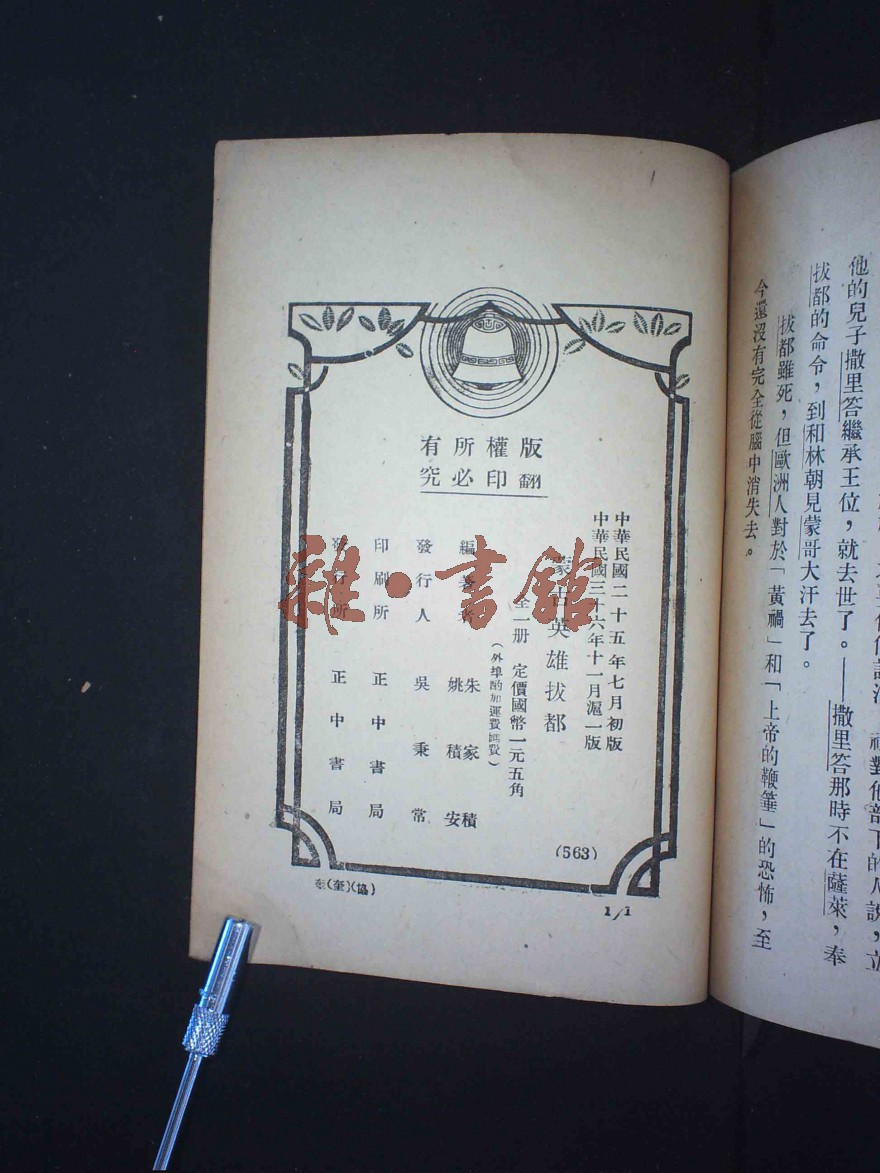 他的兒子撒里答繼承王位，就去世了。——撒里答那時不在薩萊，奉
拔都的命令，到和林朝見蒙哥大汗去了。
拔都雖死，但歐洲人對於「黃禍」和「上帝的鞭箠」的恐怖，至
今還沒有完全從腦中消失去。
版權所有
翻印必究
中華民國二十五年七月初版
中華民國三十六年十一月滬一版
蒙古英雄拔都
全一册 定價國幣一元五角
（外埠酌加運費匯費）
編著者 朱家積
姚積安
發行人 吳秉常
印刷所 正中書局
發行所 正中書局
(563)
1/1
雜·書館